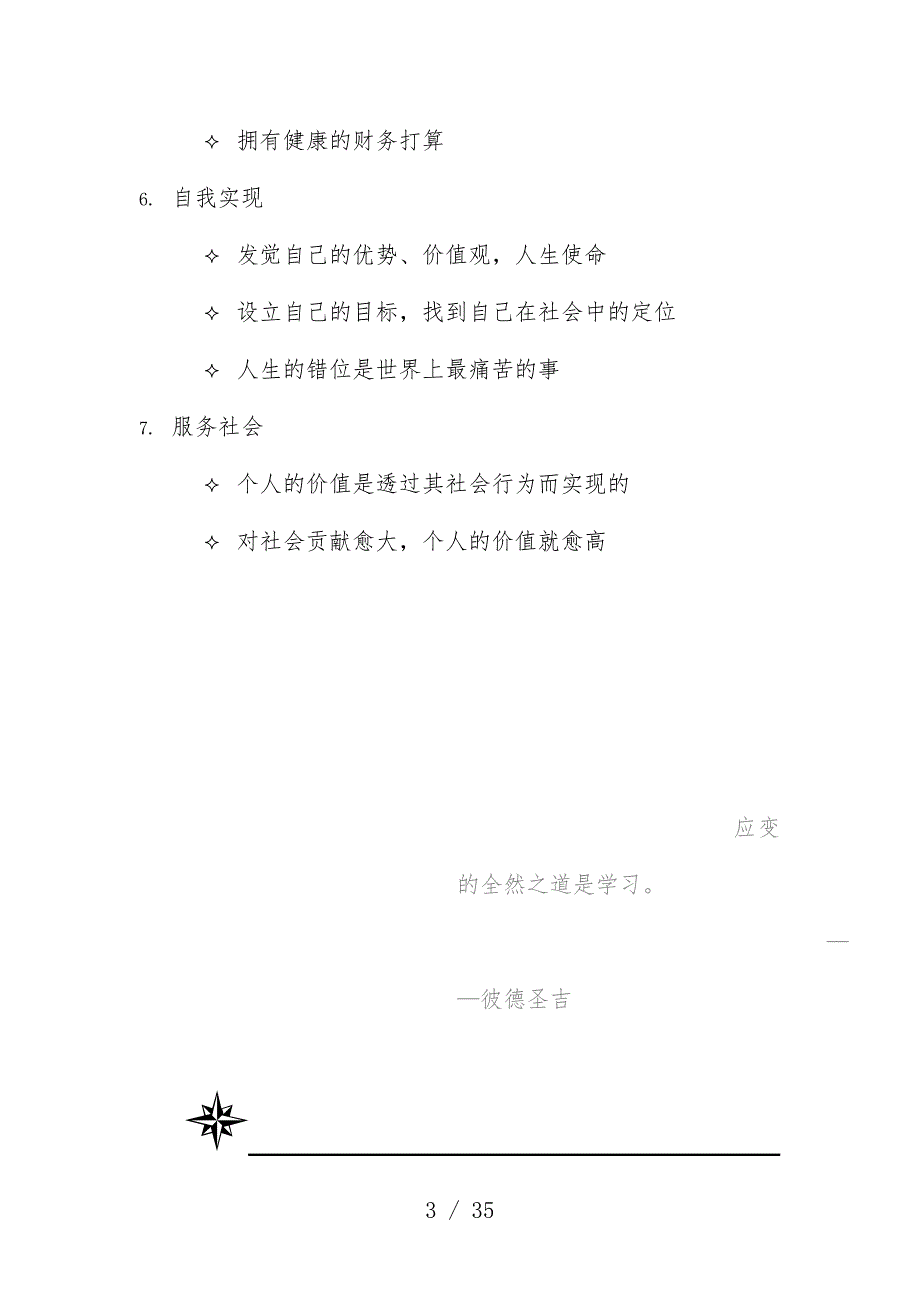 ✧ 拥有健康的财务打算
6. 自我实现
✧ 发觉自己的优势、价值观，人生使命
✧ 设立自己的目标，找到自己在社会中的定位
✧ 人生的错位是世界上最痛苦的事
7. 服务社会
✧ 个人的价值是透过其社会行为而实现的
✧ 对社会贡献愈大，个人的价值就愈高
应变
的全然之道是学习。
—
—彼德圣吉
3 / 35